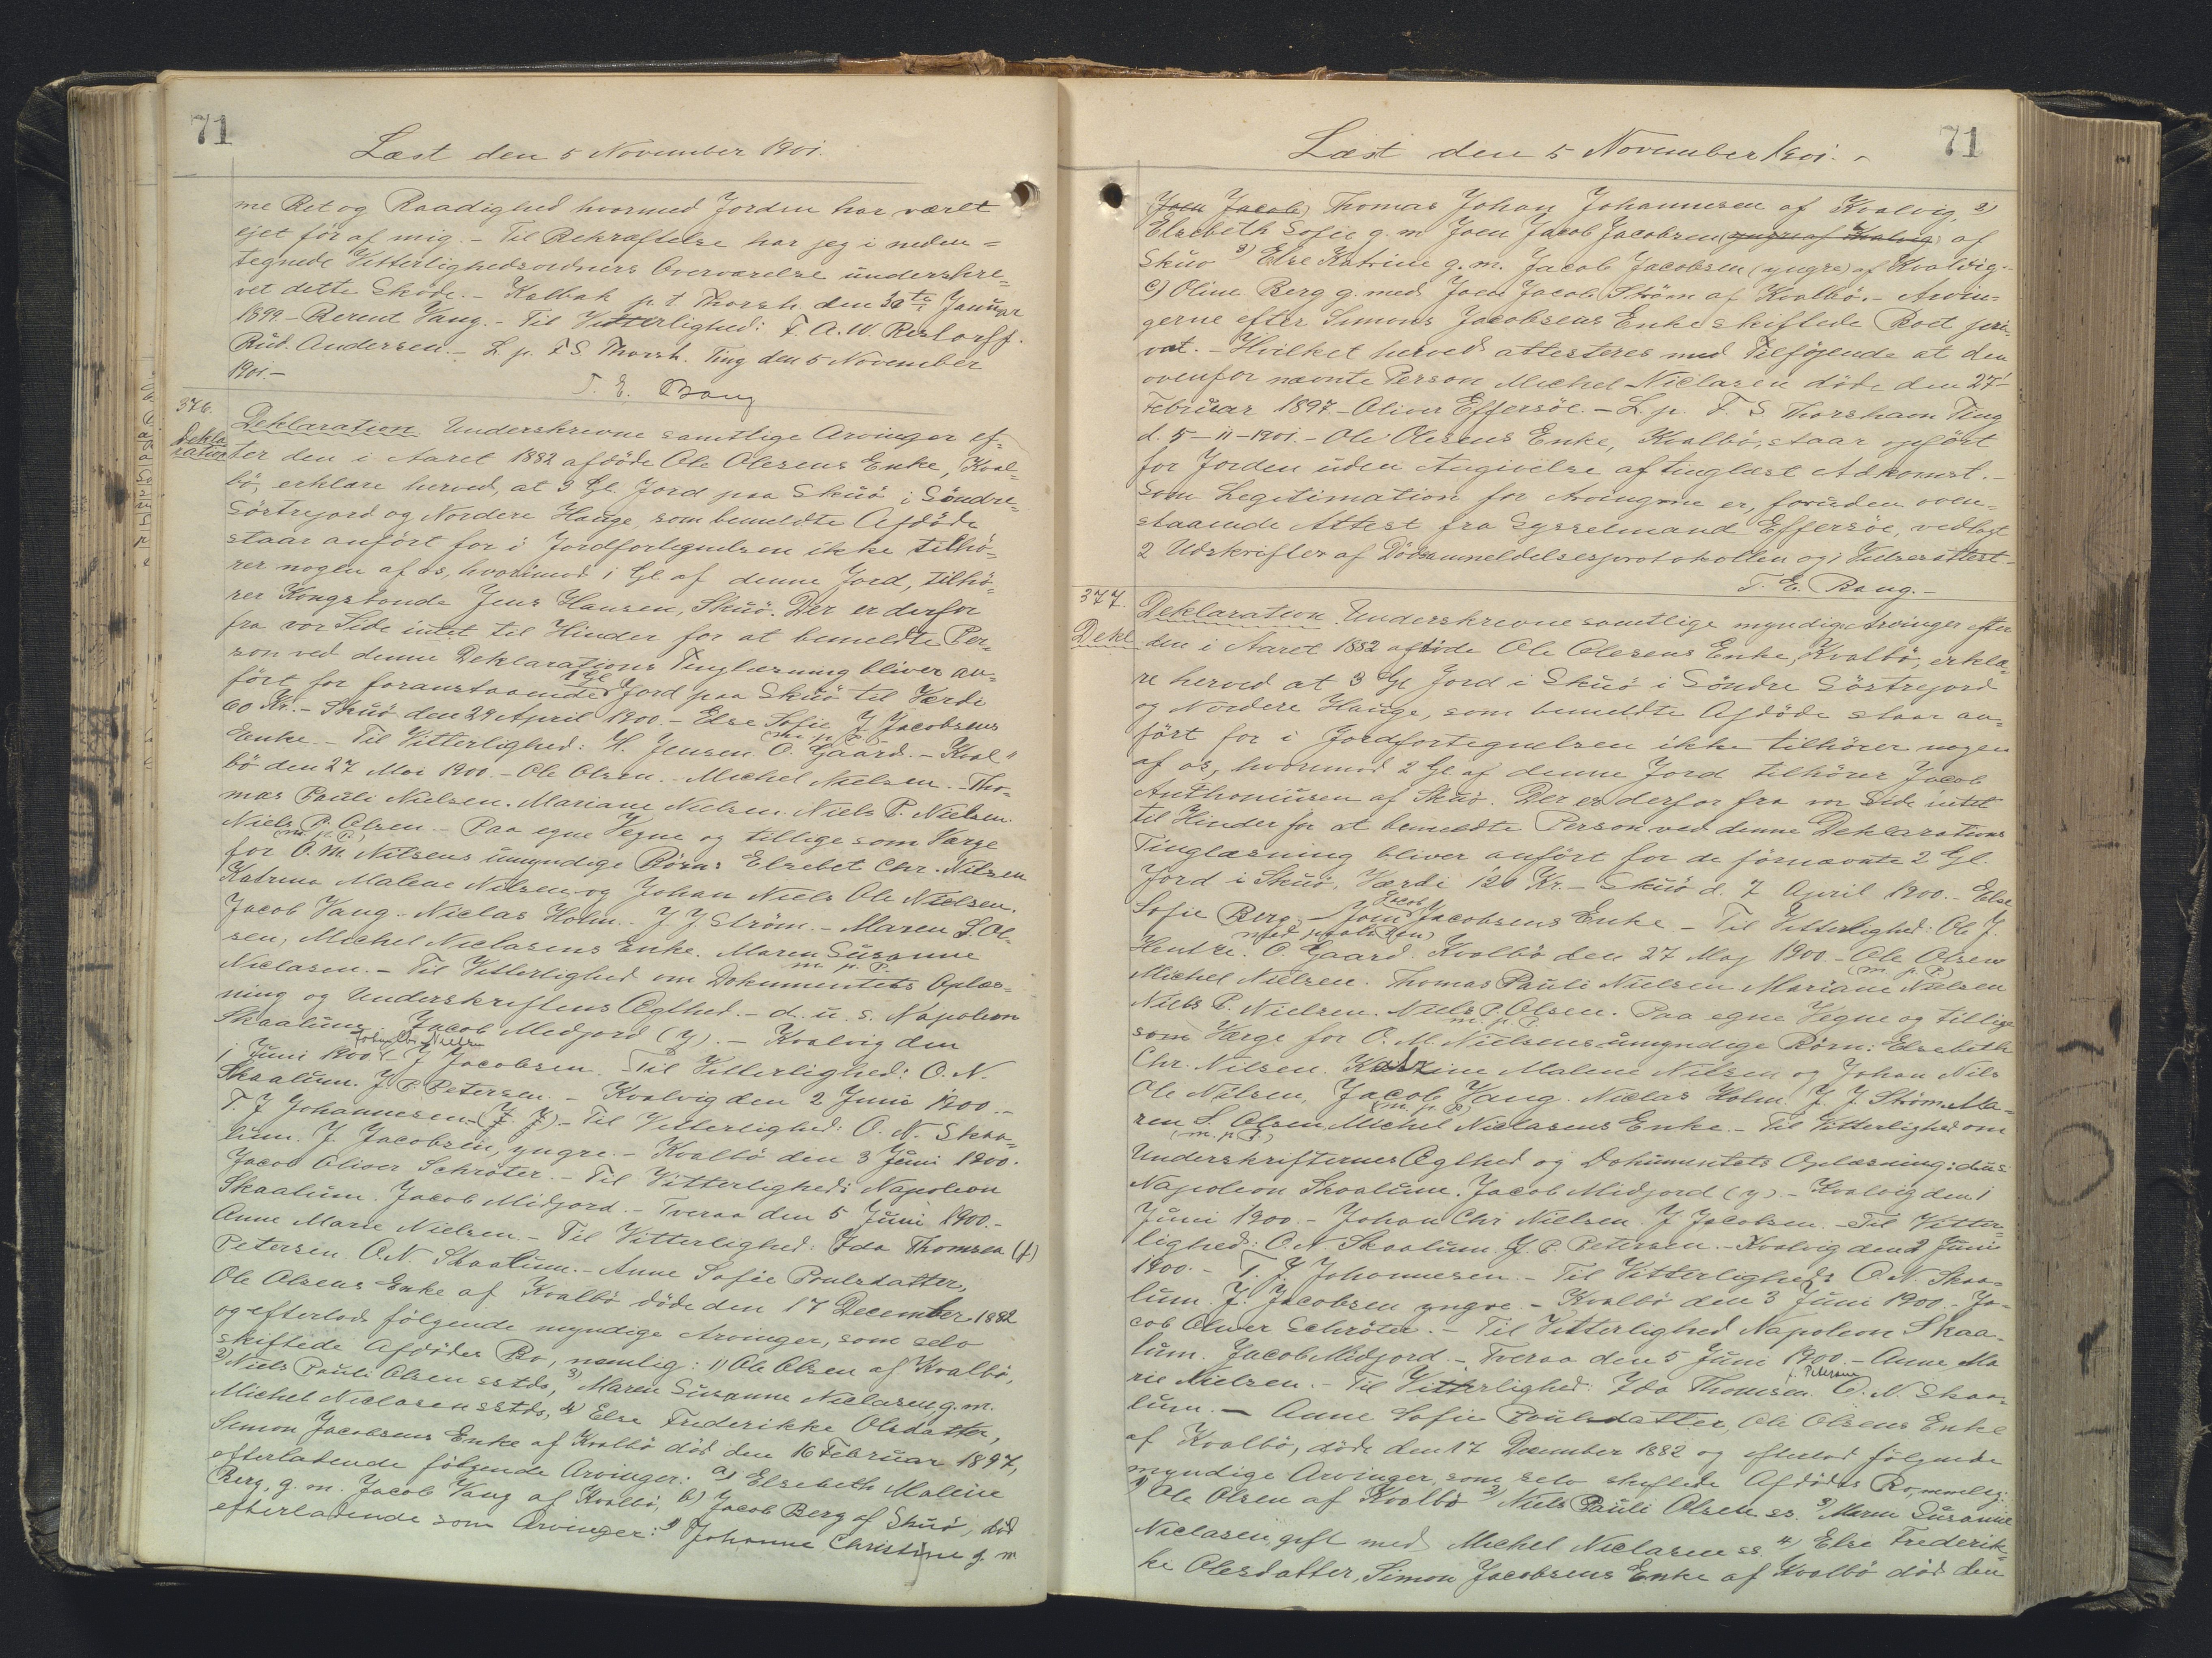 71
Læst den 5 November 1901.
me Ret og Raadighed hvormed Jorden har været
ejet før af mig. - Til Bekræftelse har jeg i neden=
tegnede Vitterlighedsvidners Overværelse underskre=
vet dette Skøde. - Kalbak p. t. Thorsh. den 30te Januar
1899. - Berent Vang. - Til Vitterlighed: F. A. W. Restorff.
Rud. Andersen. - L. p. F. S. Thorsh. Ting den 5 November
1901. -
T. E. Bang
376.
Dekla
ration
Deklaration Underskrevne samtlige Arvinger ef=
ter den i Aaret 1882 afdøde Ole Olesens Enke, Kval=
bø, erklære herved, at 3 Gl. Jord paa Skuø i Søndre=
Sørtrejord og Nordere Hauge, som bemeldte Afdøde
staar anført for i Jordfortegnelsen ikke tilhø=
rer nogen af os, hvorimod 1 Gl af denne Jord, tilhø=
rer Kongsbonde Jens Hansen, Skuø. Der er derfor
fra vor Side intet til Hinder for at bemeldte Per=
son ved denne Deklarations Tinglæsning bliver an=
ført for foranstaaende 1 Gl Jord paa Skuø til Værdi
60 Kr. - Skuø den 29 April 1900. - Else Sofie J Jacobsens
Enke. - Til Vitterlighed: H. Jensen O. Gaard. - Kval"
m. p. P.
bø den 27 Mai 1900. - Ole Olsen. - Michel Nielsen. Tho=
mas Pauli Nielsen. Mariane Nielsen. Niels P. Nielsen.
Niels P. Olsen. - Paa egne Vegne og tillige som Værge
(m. p. P.)
for O. M. Nilsens umyndige Børn: Elsebet Chr. Nilsen
Katrina Malene Nilsen og Johan Niels Ole Nielsen.
Jacob Vang. Niclas Holm. J. J Strøm. - Maren S. Ol=
sen, Michel Niclasens Enke. Maren Susanne
m. p. P.
Niclasen. - Til Vitterlighed om Dokumentets Oplæs=
ning og Underskriftens Ægthed. - d. u. s. Napoleon
Skaalum. Jacob Midjord (y). - Kvalvig den
1 Juni 1900. Johan Chr Nielsen J Jacobsen. Til Vitterlighed: O. N.
Skaalum. J. P. Petersen. - Kvalvig den 2 Juni 1900. -
T. J Johannesen. (J. J). - Til Vitterlighed: O. N. Skaa=
lum. J. Jacobsen, yngre. - Kvalbø den 3 Juni 1900.
Jacob Oliver Schrøter. - Til Vitterlighed: Napoleon
Skaalum. Jacob Midjord. - Tveraa den 5 Juni 1900. -
Anne Marie Nielsen. - Til Vitterlighed: Ida Thomsen (f)
Petersen. O. N. Skaalum. - Anne Sofie Poulsdatter,
Ole Olsens Enke af Kvalbø døde den 17 December 1882
og efterlod følgende myndige Arvinger, som selv
skiftede Afdødes Bo, nemlig: 1) Ole Olsen af Kvalbø,
2) Niels Pauli Olsen sstds, 3) Maren Susanne Niclasen g. m.
Michel Niclasen sstds, 4) Else Frederikke Olsdatter,
Simon Jacobsens Enke af Kvalbø død den 16 Februar 1897,
efterladende følgende Arvinger: a) Elsebeth Malene
Berg, g. m. Jacob Vang af Kvalbø, b) Jacob Berg af Skuø, død
efterladende som Arvinger: 1) Johanne Christine g. m
71
Læst den 5 November 1901. -
Joen Jacob) Thomas Johan Johannesen af Kvalvig, 2)
Elsebeth Sofie g. m Joen Jacob Jacobsen (yngre af Kvalvig) af
Skuø 3) Else Katrine g. m. Jacob Jacobsen (yngre) af Kvalvig. -
c) Oline Berg g. med Joen Jacob Strøm af Kvalbø. - Arvin=
gerne efter Simons Jacobsens Enke skiftede Boet pri=
vat. - Hvilket herved attesteres med Tilføjende at den
ovenfor nævnte Person Michel Niclasen døde den 27'
Februar 1897 - Oliver Effersøe. - L. p. F. S Thorshavn Ting
d. 5 - 11 - 1901. - Ole Olesens Enke, Kvalbø, staar opført
for Jorden uden Angivelse af tinglæst Adkomst. -
Som Legitimation for Arvingerne er, foruden oven=
staaende Attest fra Sysselmand Effersøe, vedlagt
2 Udskrifter af Dødsanmeldelsesprotokollen og 1 Vielsesattest. -
T. E. Bang. -
377.
Dekl
Deklaration. Underskrevne samtlige myndige Arvinger efter
den i Aaret 1882 afdøde Ole Olesens Enke, Kvalbø, erklæ=
re herved at 3 Gl Jord i Skuø i Søndre Sørtrejord
og Nordere Hauge, som bemeldte Afdøde staar an=
ført for i Jordfortegnelsen ikke tilhører nogen
af os, hvorimod 2 Gl af denne Jord tilhører Jacob
Anthoniusen af Skuø. Der er derfor fra vor Side intet
til Hinder for at bemeldte Person ved denne Deklarations
Tinglæsning bliver anført for de førnævnte 2 Gl.
Jord i Skuø, Værdi 120 Kr. - Skuø d. 7 April 1900. - Else
Sofie Berg, - Joen Jacob Jacobsens Enke - Til Vitterlighed: Ole J.
med paaholden
Hentze. O. Gaard. Kvalbø den 27 Maj 1900. - Ole Olsen
(m. p. P.)
Michel Nielsen. Thomas Pauli Nielsen. Mariane Nielsen
Niels P. Nielsen. Niels P. Olsen. Paa egne Vegne og tillige
m. p. P.
som Værge for O. M. Nielsens umyndige Børn: Elsebeth
Chr. Nilsen. Katrine Malene Nilsen og Johan Nils
Ole Nilsen, Jacob Vang. Niclas Holm. J. J. Strøm. Ma=
(m. p. P)
ren S. Olsen Michel Niclasens Enke. - Til Vitterlighed om
(m. p. P.)
Underskrifternes Ægthed og Dokumentets Oplæsning: dus
Napoleon Skaalum. Jacob Midjord (y). - Kvalvig den 1
Juni 1900. - Johan Chr Nielsen. J Jacobsen. - Til Vitter=
lighed: O. N. Skaalum. J. P. Petersen. - Kvalvig den 2 Juni
1900. - T. J. Johannesen. - Til Vitterlighed: O. N. Skaa=
lum. J. Jacobsen yngre. - Kvalbø den 3 Juni 1900. - Ja=
cob Oliver Schrøter. - Til Vitterlighed Napoleon Skaa=
lum. Jacob Midjord. - Tveraa den 5 Juni 1900. - Anne Ma
rie Nielsen. - Til Vitterlighed: Ida Thomsen f. Petersen O. N. Skaa=
lum. - Anne Sofie Poulsdatter, Ole Olsens Enke
af Kvalbø, døde den 17 December 1882 og efterlod følgende
myndige Arvinger, som selv skiftede Afdødes Bo, nemlig:
1) Ole Olsen af Kvalbø 2) Niels Pauli Olsen ss. 3) Maren Susanne
Niclasen, gift med Michel Niclasen ss. 4) Else Frederik=
ke Olesdatter, Simon Jacobsens Enke af Kvalbø død den